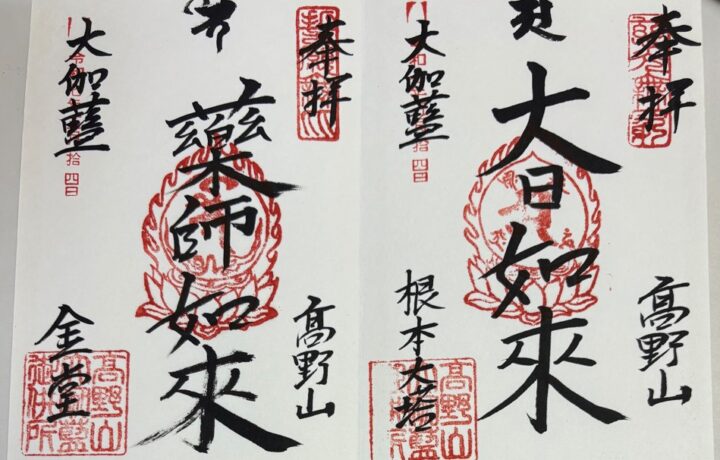 奉拝
高野山
大日如來
大伽藍
根本大塔
高野山
拾四日
奉拝
高野山
藥師如來
大伽藍
金堂
高野山
拾四日